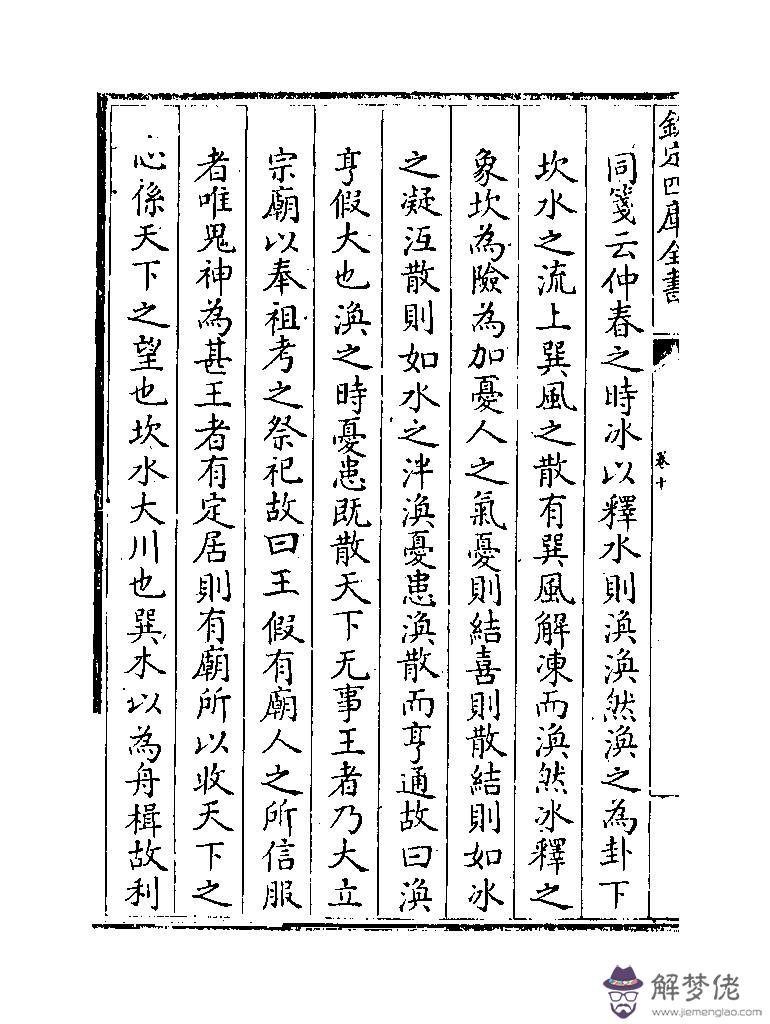 欽定四庫全書
卷十
同箋云仲春之時冰以釋水則渙渙然渙之為卦下
坎水之流上巽風之散有巽風解凍而渙然冰釋之
象坎為險為加憂人之氣憂則結喜則散結則如冰
之凝沍散則如水之泮渙憂患渙散而亨通故曰渙
亨假大也渙之時憂患既散天下无事王者乃大立
宗廟以奉祖考之祭祀故曰王假有廟人之所信服
者唯鬼神為甚王者有定居則有廟所以收天下之
心係天下之望也坎水大川也巽木以為舟楫故利
解梦佬
www.jiemenglao.com